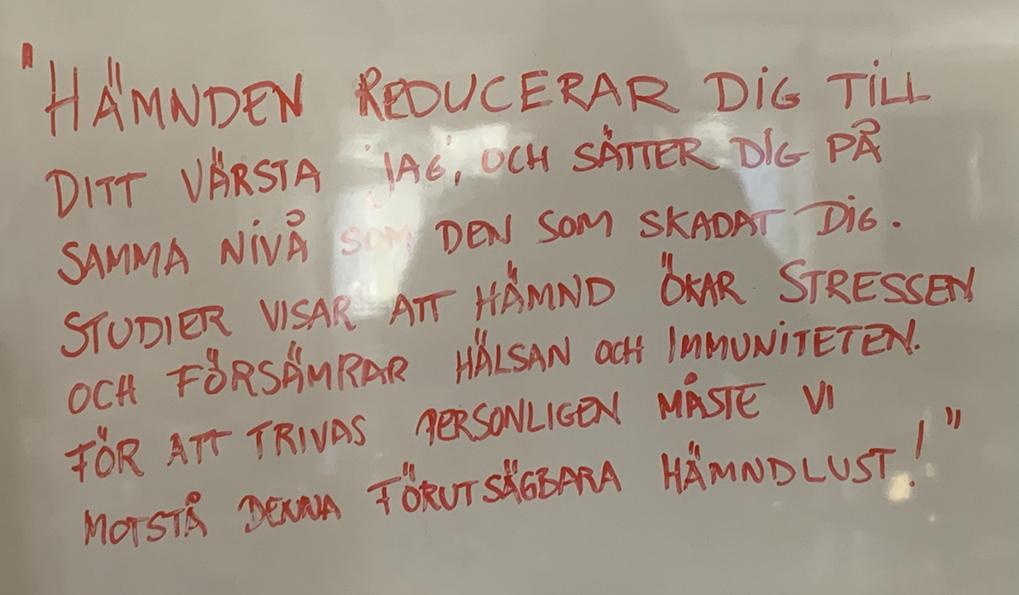 "HÄMNDEN REDUCERAR DIG TILL
DITT VÄRSTA 'JAG', OCH SÄTTER DIG PÅ
SAMMA NIVÅ SOM DEN SOM SKADAT DIG.
STUDIER VISAR ATT HÄMND ÖKAR STRESSEN
OCH FÖRSÄMRAR HÄLSAN OCH IMMUNITETEN.
FÖR ATT TRIVAS PERSONLIGEN MÅSTE VI
MOTSTÅ DENNA FÖRUTSÄGBARA HÄMNDLUST!"